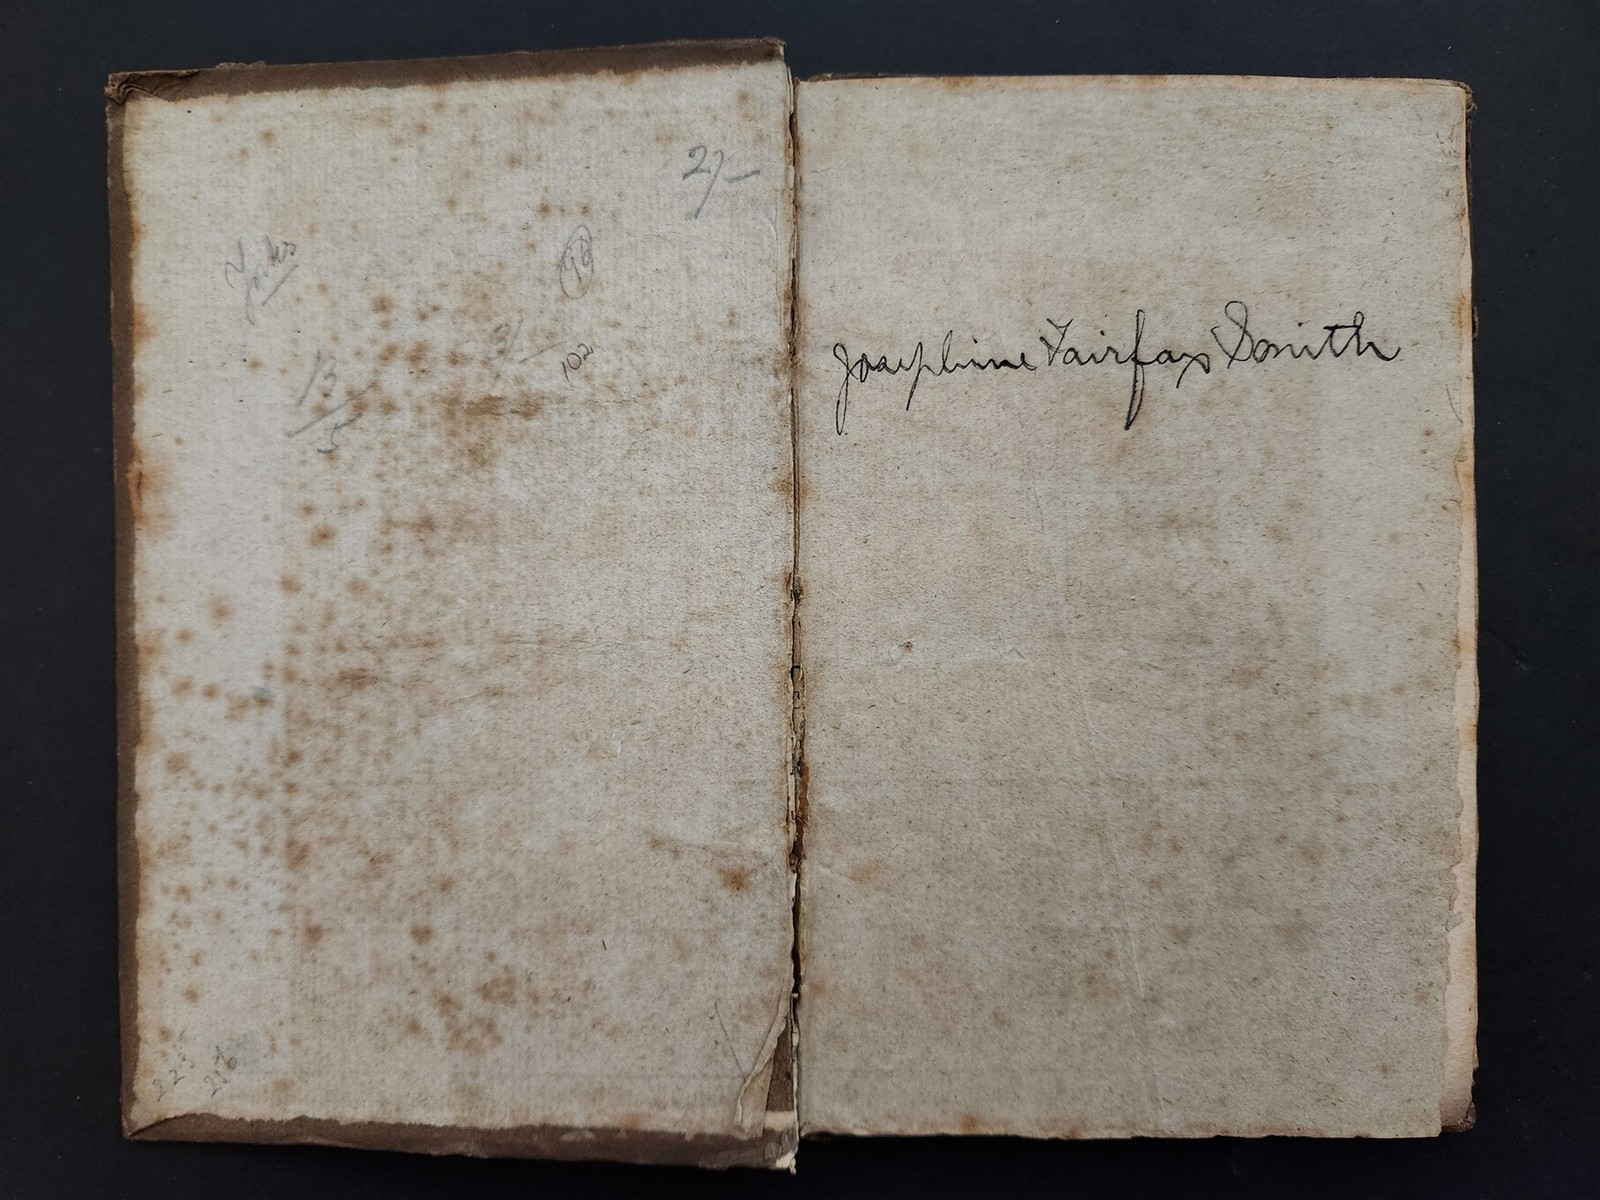 2/-
Yorks
99
2/-
102
13/5
Josephine Fairfax Smith